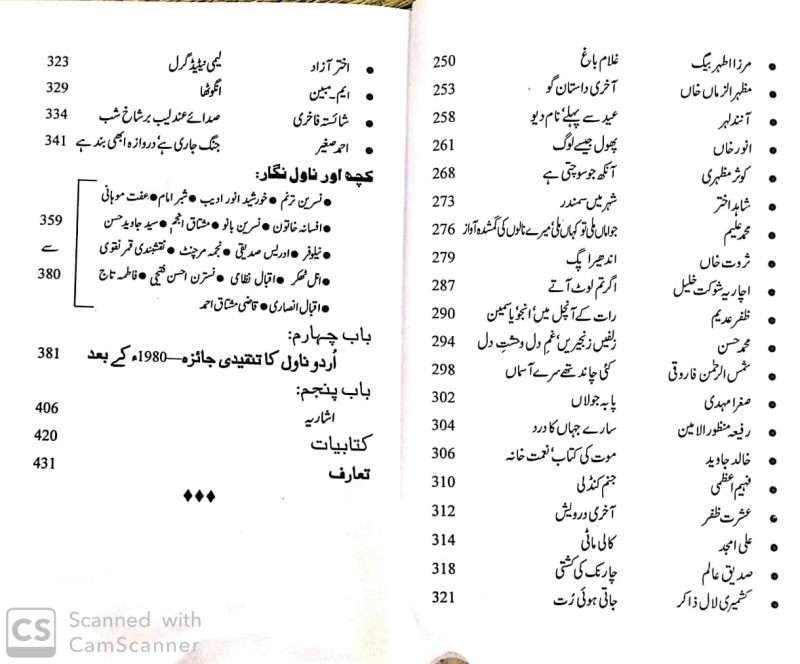 مرزا اطہر بیگ غلام باغ 250
مظہر الزماں خاں آخری داستان گو 253
آنند لہر عید سے پہلے‘ نام دیو 258
انور خاں پھول جیسے لوگ 261
کوثر مظہری آنکھ جو سوچتی ہے 268
شاہد اختر شہر میں سمندر 273
محمد علیم جو اماں ملی تو کہاں ملی‘ میرے نالوں کی گمشدہ آواز 276
ثروت خاں اندھیرا پگ 279
اچاریہ شوکت خلیل اگر تم لوٹ آتے 287
ظفر عدیم رات کے آنچل میں‘ انجو‘ یاسمین 290
محمد حسن زلفیں زنجیریں‘ غم دل وحشت دل 294
شمس الرحمٰن فاروقی کئی چاند تھے سر آسماں 298
صغرا مہدی پا بہ جولاں 302
رفیعہ منظور الامین سارے جہاں کا درد 304
خالد جاوید موت کی کتاب‘ نعمت خانہ 306
فہیم اعظمی جنم کنڈلی 310
عشرت ظفر آخری درویش 312
علی امجد کالی ماٹی 314
صدیق عالم چارنک کی کشتی 318
کشمیری لال ذاکر جاتی ہوئی رُت 321
اختر آزاد لیمی نیٹیڈ گرل 323
ایم۔مبین انگوٹھا 329
شائستہ فاخری صدائے عندلیب بر شاخ شب 334
احمد صغیر جنگ جاری ہے‘ دروازہ ابھی بند ہے 341
کچھ اور ناول نگار:
● نسرین ترنم ● خورشید انور ادیب ● شبر امام ● عفت موہانی
● افسانہ خاتون ● نسرین بانو ● مشتاق انجم ● سید جاوید حسن 359
● نیلوفر ● ادریس صدیقی ● نجمہ مرچنٹ ● نقشبندی قمر نقوی سے
● انل ٹھکر ● اقبال نظامی ● نسترن احسن فتیحی ● فاطمہ تاج 380
● اقبال انصاری ● قاضی مشتاق احمد
باب چہارم:
اُردو ناول کا تنقیدی جائزہ—1980ء کے بعد 381
باب پنجم:
اشاریہ 406
کتابیات 420
تعارف 431
♦♦♦
CS Scanned with
CamScanner